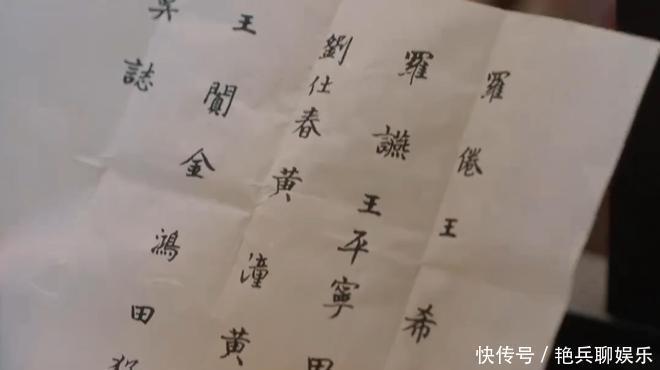 羅倦王希
羅讌王平寧
劉仕春黃潼黃
王金鴻田
誌
快传号 / 艳兵聊娱乐